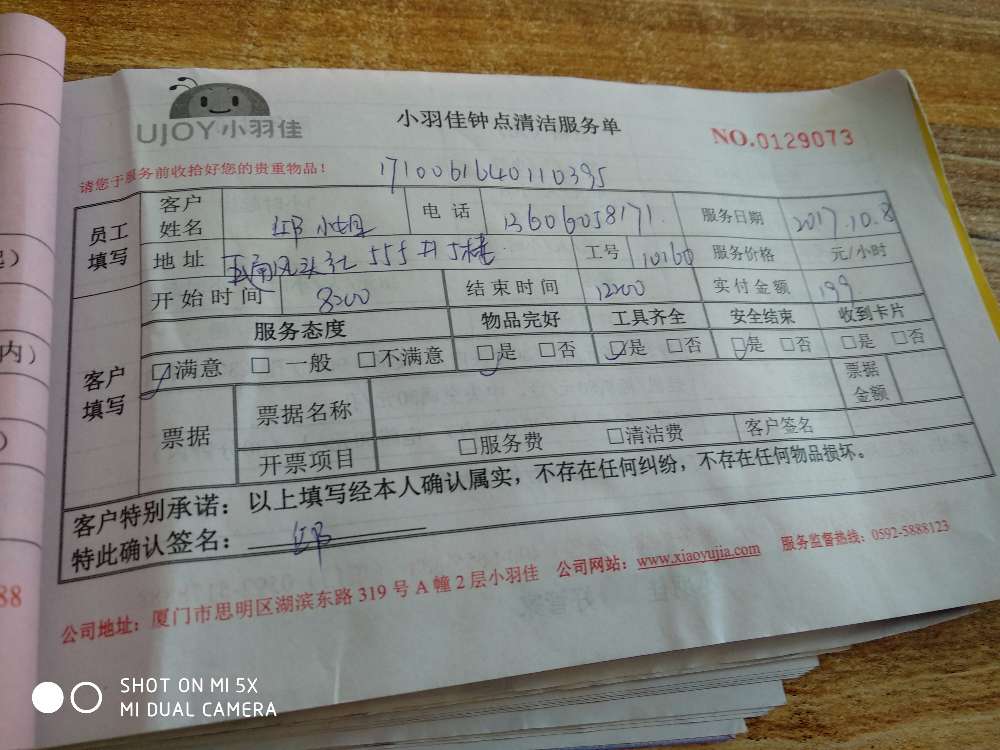 UJOY 小羽佳
小羽佳钟点清洁服务单
NO.0129073
请您于服务前收拾好您的贵重物品!
1710061640110395
员工填写
客户姓名 邱小姐 电话 13606058171 服务日期 2017.10.8
地址 555#5楼 工号 10160 服务价格 元/小时
开始时间 8:00 结束时间 12:00 实付金额 199
客户填写
服务态度 物品完好 工具齐全 安全结束 收到卡片
☑满意 □一般 □不满意 ☑是 □否 ☑是 □否 ☑是 □否 □是 □否
票据 票据名称 票据金额
开票项目 □服务费 □清洁费 客户签名
客户特别承诺:以上填写经本人确认属实,不存在任何纠纷,不存在任何物品损坏。
特此确认签名: 邱
公司地址:厦门市思明区湖滨东路319号A幢2层小羽佳 公司网站:www.xiaoyujia.com 服务监督热线:0592-5888123
内)
)
88
SHOT ON MI 5X
MI DUAL CAMERA